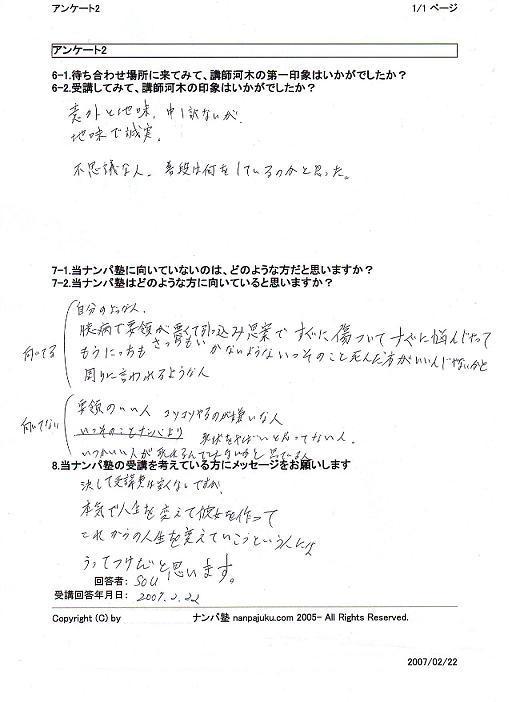 アンケート2
1/1 ページ
アンケート2
6-1.待ち合わせ場所に来てみて、講師河木の第一印象はいかがでしたか？
6-2.受講してみて、講師河木の印象はいかがでしたか？
意外と地味。申し訳ないが、
地味で誠実。
不思議な人。普段は何をしているのかと思った。
7-1.当ナンパ塾に向いていないのは、どのような方だと思いますか？
7-2.当ナンパ塾はどのような方に向いていると思いますか？
自分のような人。
臆病で要領が悪くて引込み思案ですぐに傷ついてすぐに悩んじゃって
向いてる
もうにっちもさっちもいかないようないっそのこと死んだ方がいいんじゃないかと
周りに言われるような人
要領のいい人 コツコツやるのが嫌いな人
向いてない
いっそのことナンパより 現状をやばいと思ってない人。
いつかいい人が現れるんで
8.当ナンパ塾の受講を考えている方にメッセージをお願いします
決して受講費は安くないですが、
本気で人生を変えて彼女を作って
これからの人生を変えていこうという人には
うってつけだと思います。
回答者： SOU
受講回答年月日： 2007.2.22
Copyright (C) by ナンパ塾 nanpajuku.com 2005- All Rights Reserved.
2007/02/22